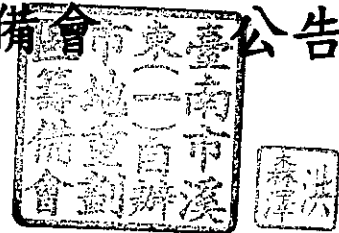 備會 公告
臺南市溪
東(一)自辦
市地重劃
區籌備會
洪
森澤